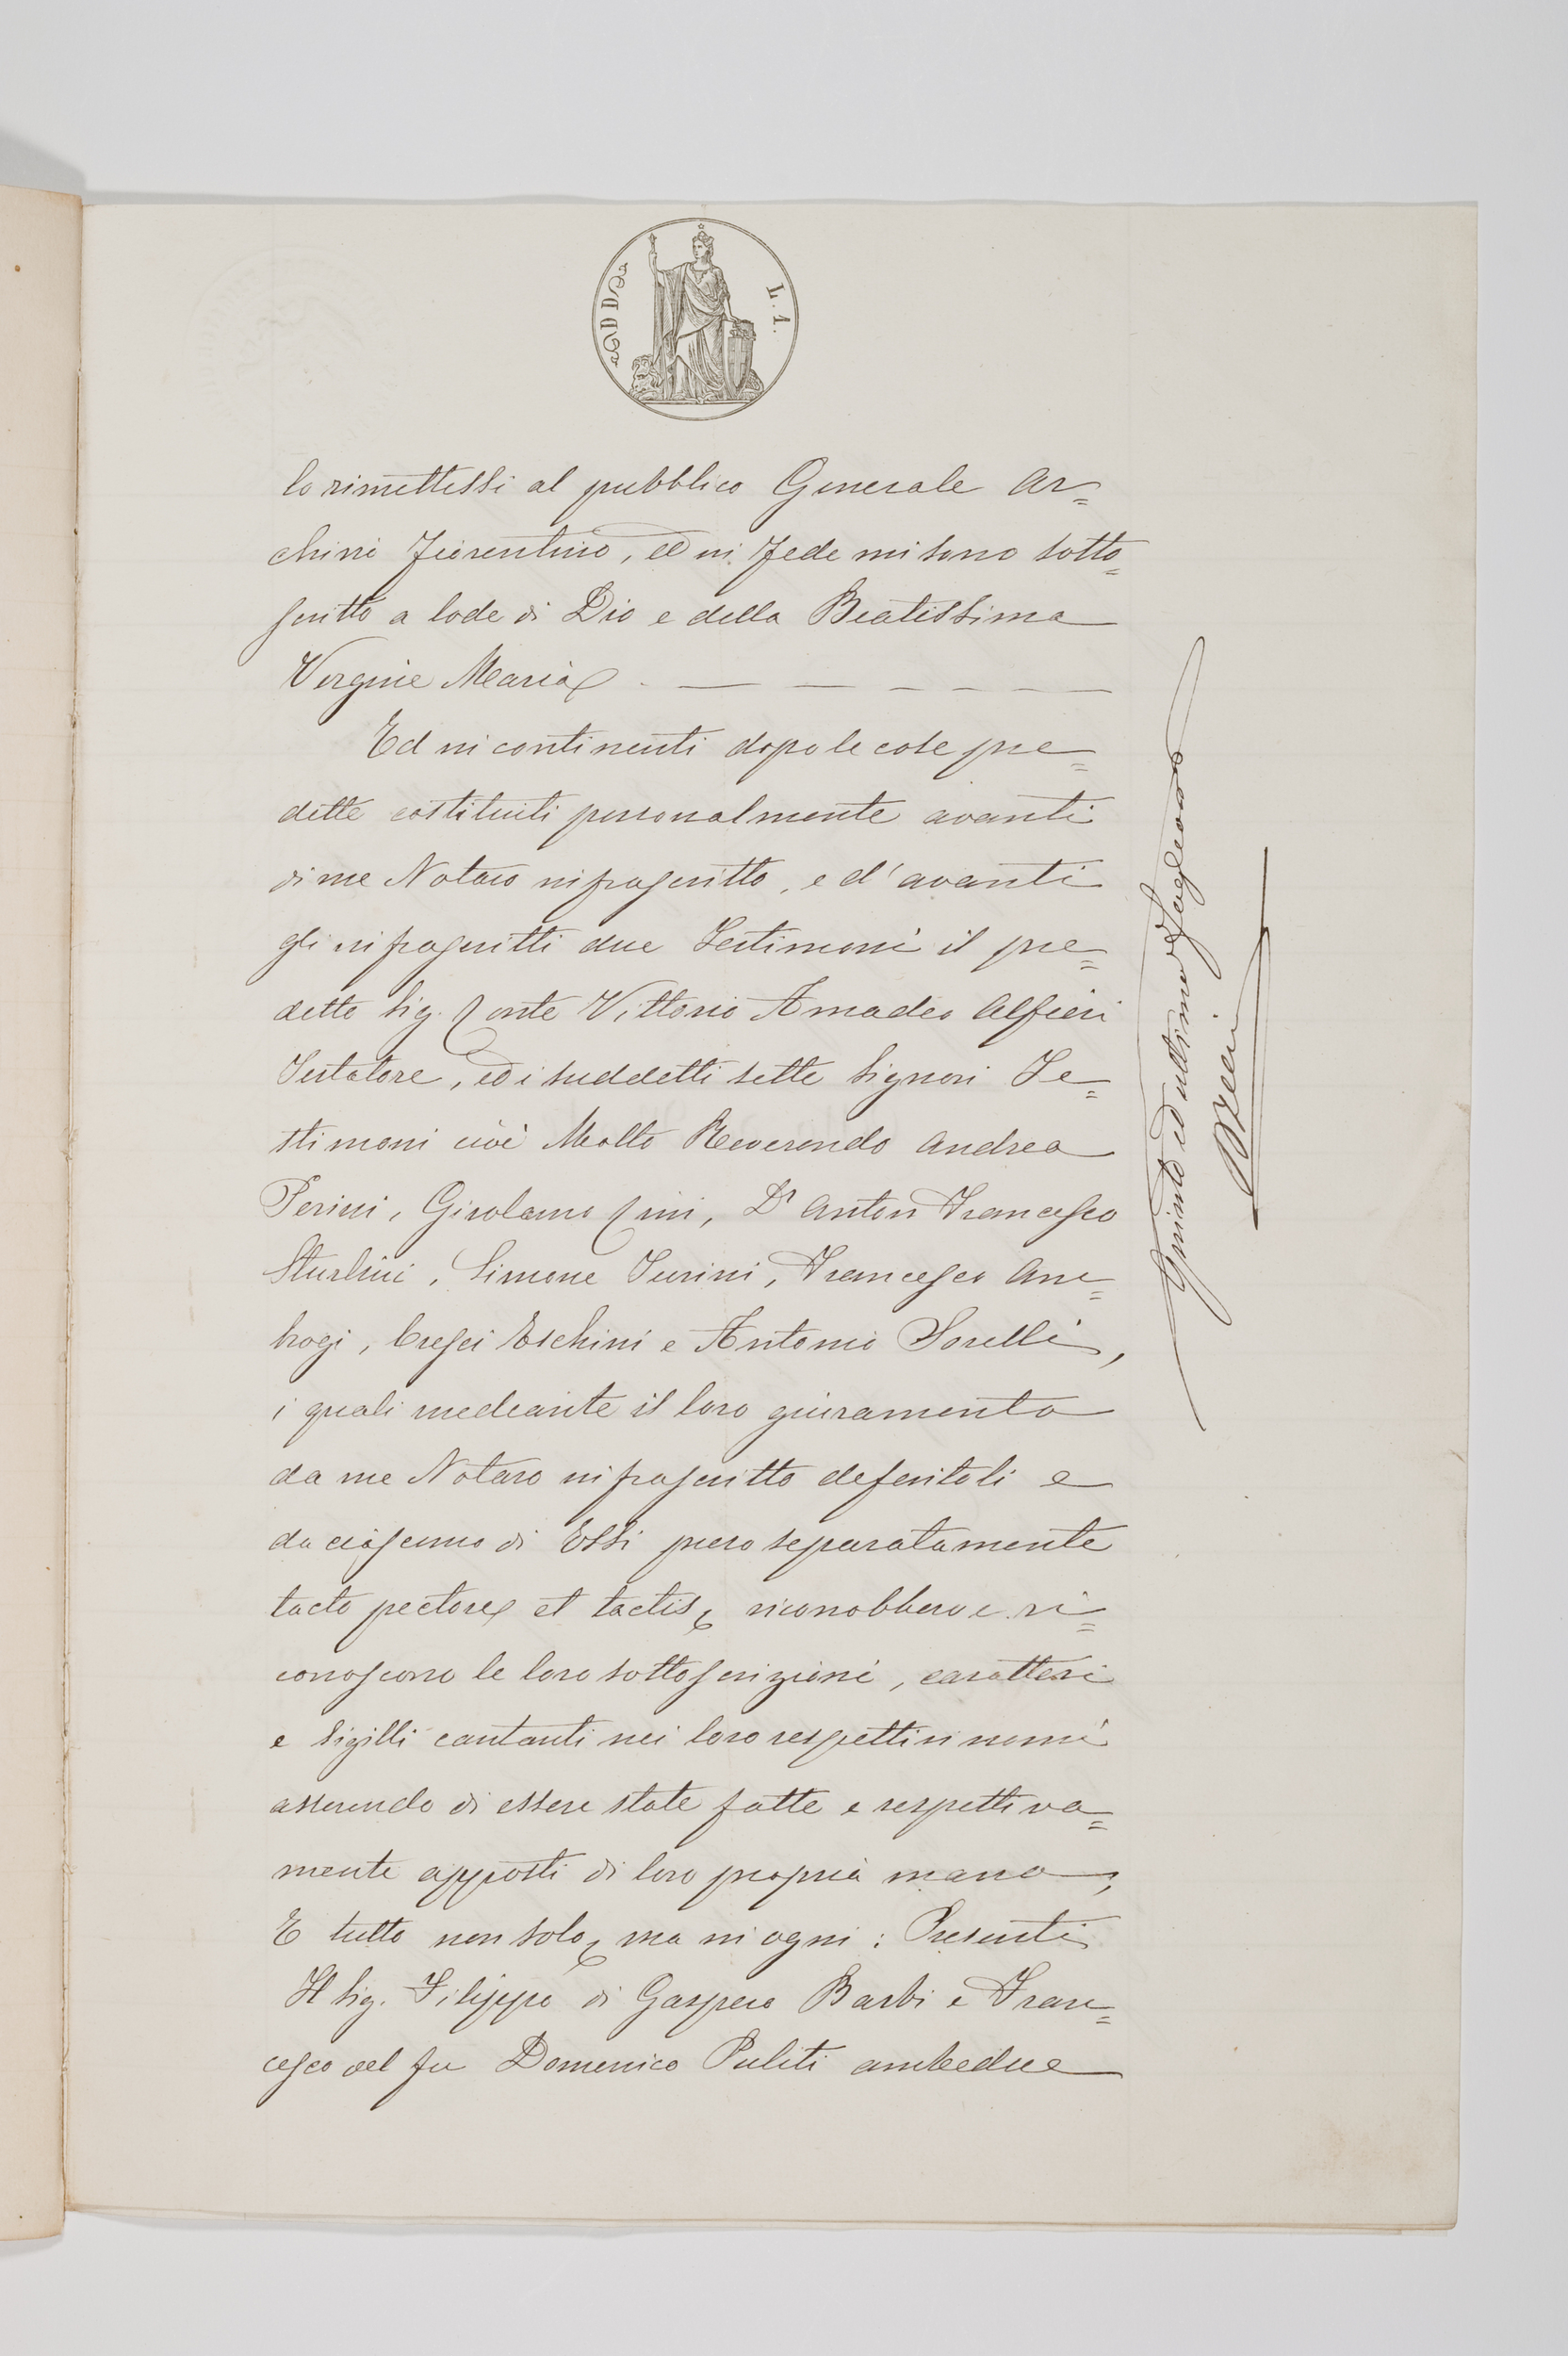 L. 1.
lo rimettessi al pubblico Generale Ar=
chivi Fiorentino, ed in fede mi sono sotto=
scritto a lode di Dio e della Beatissima
Vergine Maria
Ed in continenti dopo le cose pre=
dette costituiti personalmente avanti
di me Notaro infrascritto, e d'avanti
gli infrascritti due Testimoni il pre=
detto Sig. Conte Vittorio Amadeo Alfieri
Testatore, ed i suddetti sette Signori Te=
stimoni cioè Molto Reverendo Andrea
Perini, Girolamo Cini, Dr Anton Francesco
Sturlini, Simone Turini, Francesco Am=
brogi, Cresci Eschini e Antonio Sorelli,
i quali mediante il loro giuramento
da me Notaro infrascritto deferitoli e
da ciascuno di Essi preso separatamente
tacto pectore et tactis riconobbero e ri=
conoscono le loro sottoscrizioni, caratteri
e sigilli cantanti nei loro respettivi nomi
asserendo di essere state fatte e respettiva=
mente apposti di loro propria mano,
E tutto non solo, ma in ogni: Presenti
Il Sig. Filippo di Gaspero Barbi e Fran=
cesco del fu Domenico Puliti ambedue
Quinto ed ultimo Foglio